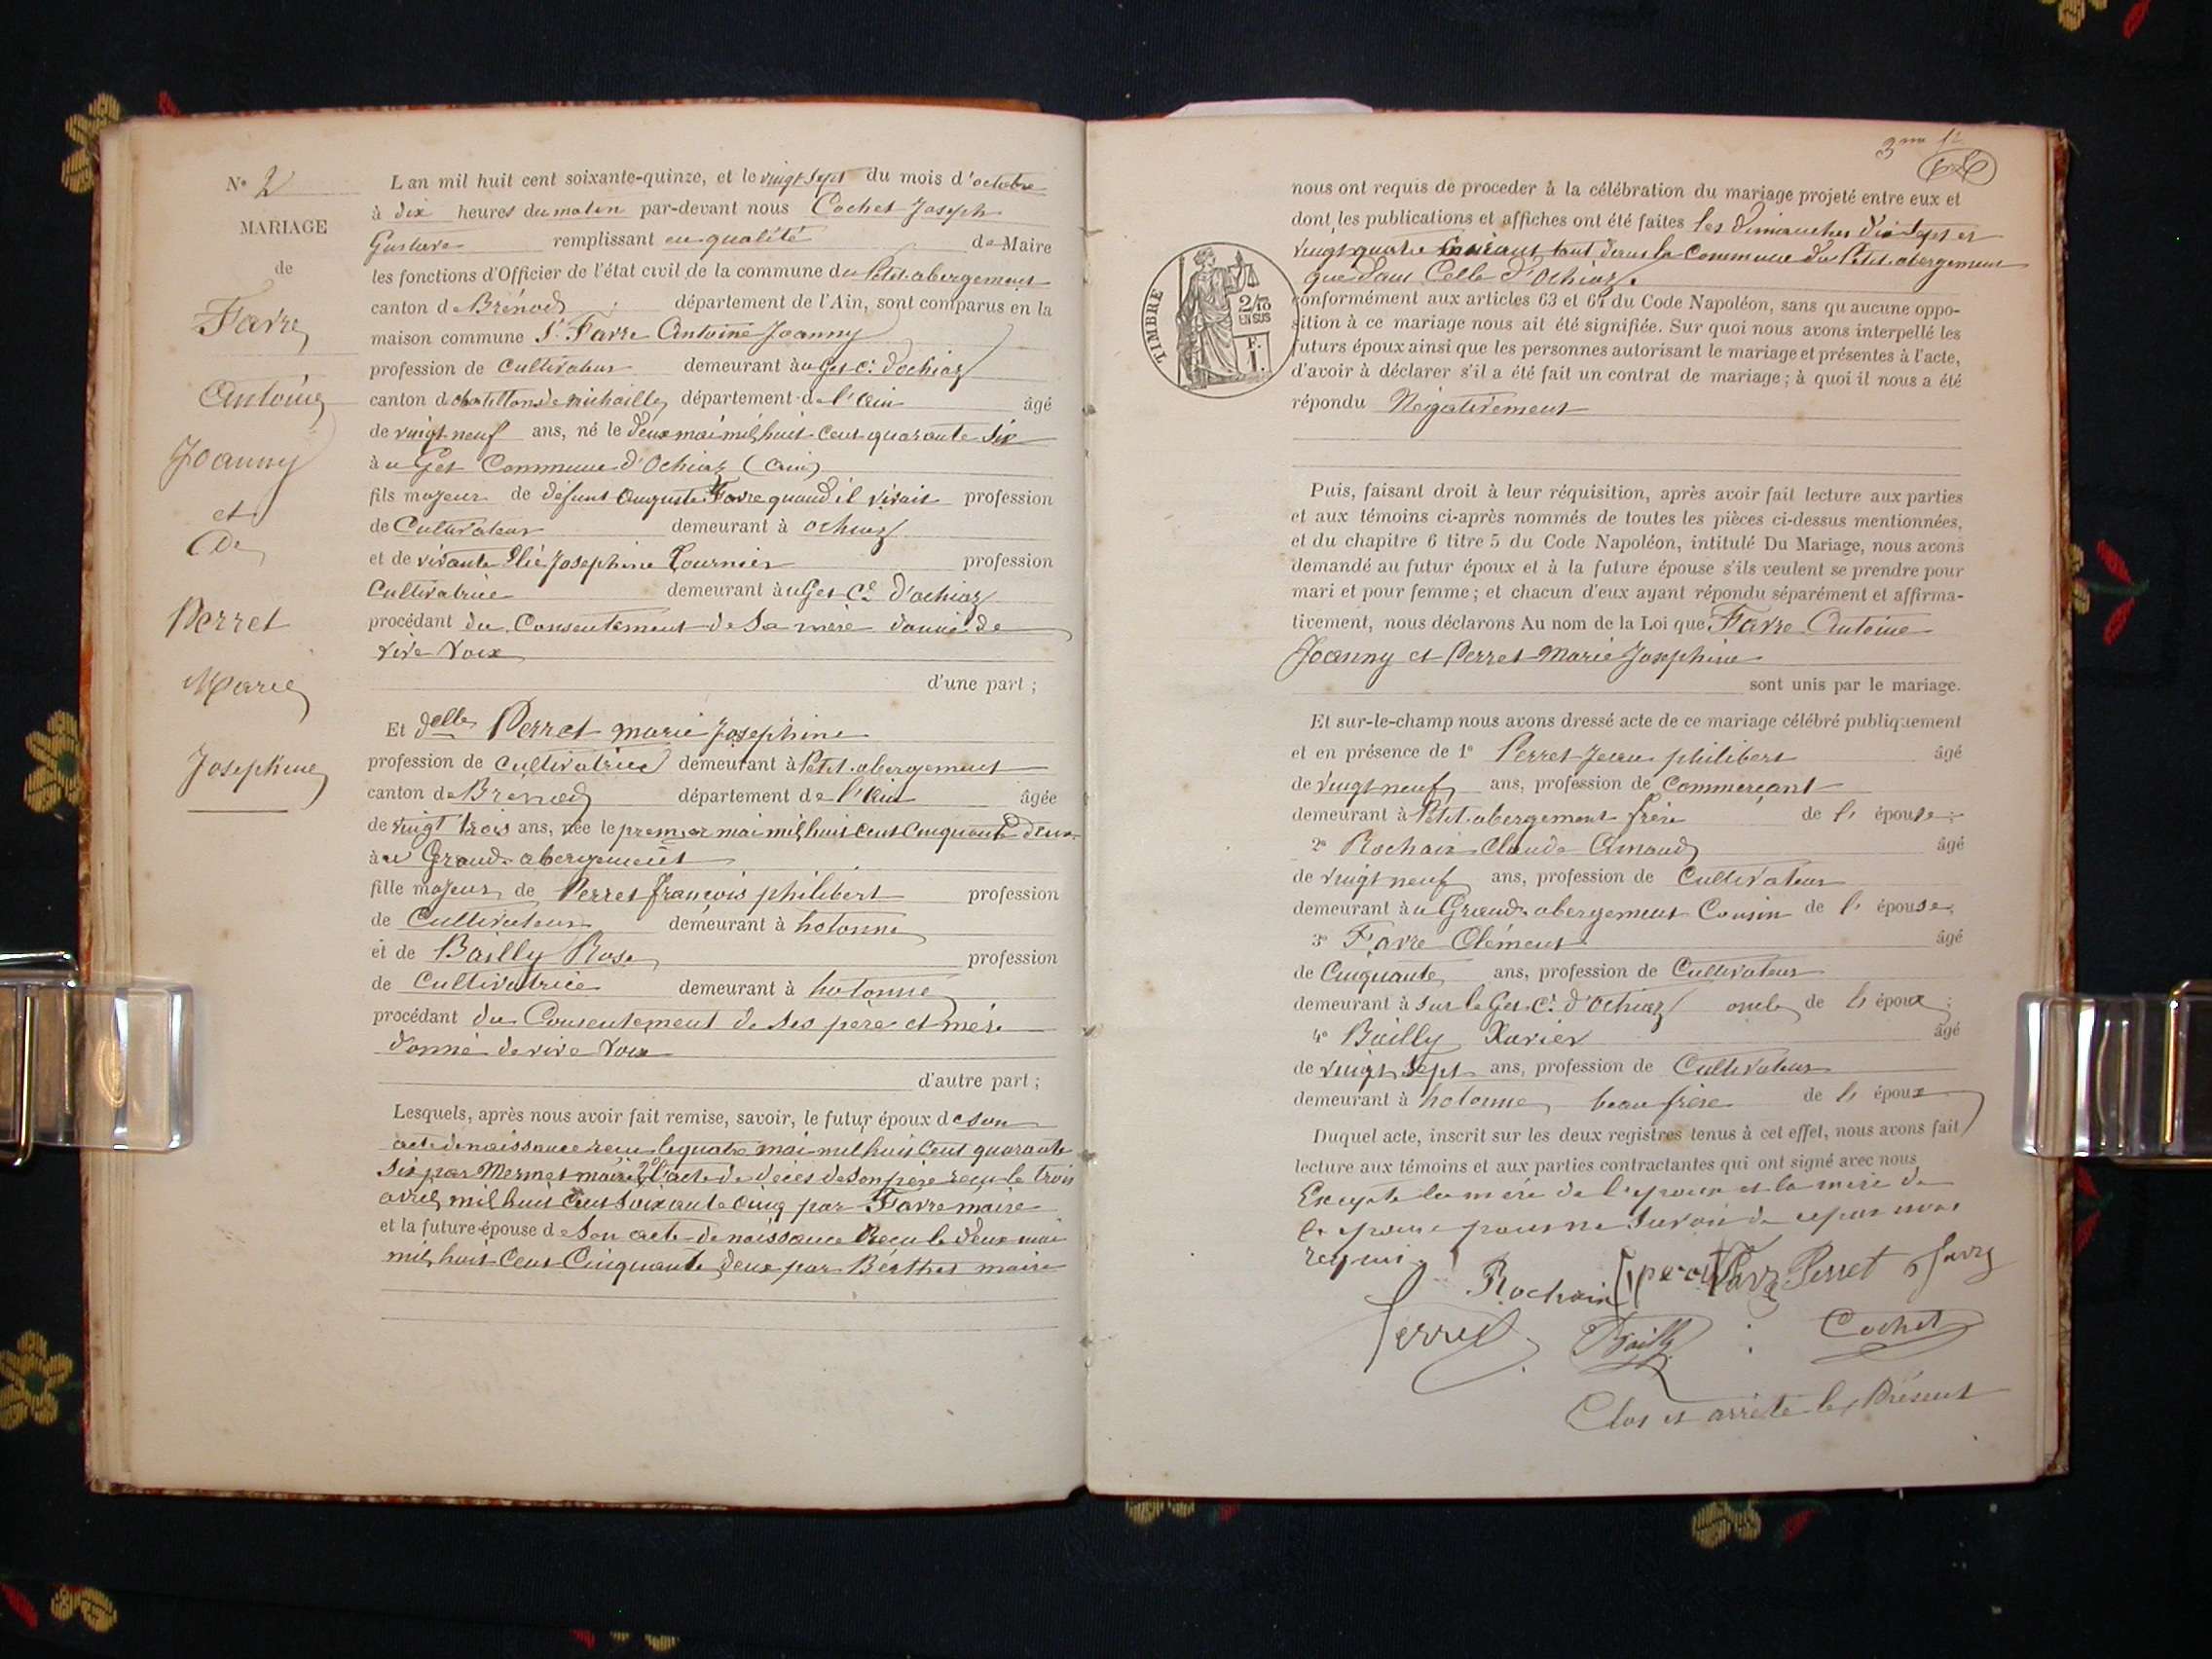 N° 2
MARIAGE
de
Favre
Antoine
Joanny
et
De
Perret
Marie
Josephine
L an mil huit cent soixante-quinze, et le vingt sept du mois d'octobre
à dix heures du matin par-devant nous Cochet Joseph
Gustave remplissant en qualité de Maire
les fonctions d'Officier de l'état civil de la commune du Petit abergement
canton de Brénod département de l'Ain, sont comparus en la
maison commune Sr Favre Antoine Joanny
profession de Cultivateur demeurant au Get Cne d'ochiaz
canton de chatillon de michaille, département de l'ain âgé
de vingt neuf ans, né le deux mai mil huit cent quarante six
à u Get Commune d'Ochiaz (ain)
fils majeur de défunt auguste Favre quand il vivait profession
de Cultivateur demeurant à ochiaz
et de vivante Josephine Tournier profession
Cultivatrice demeurant au Get Cne d'ochiaz
procédant du Consentement de Sa mère donné de
vive voix
d'une part ;
Et delle Perret marie Josephine
profession de Cultivatrice demeurant à Petit abergement
canton de Brénod département de l'ain âgée
de vingt trois ans, née le premier mai mil huit cent cinquante deux
à u Grand abergement
fille majeur de Perret françois philibert profession
de Cultivateur demeurant à hotonne
et de Bailly Rose profession
de Cultivatrice demeurant à hotonne
procédant du Consentement de ses pere et mère
donné de vive voix
d'autre part ;
Lesquels, après nous avoir fait remise, savoir, le futur époux de son
acte de naissance recu le quatre mai mil huit cent quarante
six par Mermet maire 2° l'acte de décès de son père recu le trois
avril mil huit cent soixante cinq par Favre maire
et la future épouse de Son acte de naissance Recu le deux mai
mil huit cent Cinquante deux par Berthet maire
3me
nous ont requis de proceder à la célébration du mariage projeté entre eux et
dont les publications et affiches ont été faites les dimanches dix sept et
vingt quatre Courant tant dans la Commune du Petit abergement
que dans Celle d'Ochiaz.
TIMBRE
2/10
EN SUS
F.
1.
conformément aux articles 63 et 67 du Code Napoléon, sans qu aucune oppo-
sition à ce mariage nous ait été signifiée. Sur quoi nous avons interpellé les
futurs époux ainsi que les personnes autorisant le mariage et présentes à l'acte,
d'avoir à déclarer s'il a été fait un contrat de mariage ; à quoi il nous a été
répondu Négativement
Puis, faisant droit à leur réquisition, après avoir fait lecture aux parties
et aux témoins ci-après nommés de toutes les pièces ci-dessus mentionnées,
et du chapitre 6 titre 5 du Code Napoléon, intitulé Du Mariage, nous avons
demandé au futur époux et à la future épouse s'ils veulent se prendre pour
mari et pour femme ; et chacun d'eux ayant répondu séparément et affirma-
tivement, nous déclarons Au nom de la Loi que Favre Antoine
Joanny et Perret Marie Josephine
sont unis par le mariage.
Et sur-le-champ nous avons dressé acte de ce mariage célébré publiquement
et en présence de 1° Perret Jean philibert âgé
de vingt neuf ans, profession de Commerçant
demeurant à Petit abergement frère de l' épouse ;
2° Rochaix Claude Amand âgé
de vingt neuf ans, profession de Cultivateur
demeurant à u Grand abergement Cousin de l' épouse,
3° Favre Clément âgé
de Cinquante ans, profession de Cultivateur
demeurant à Sur le Get Cne d'Ochiaz oncle de l' époux ;
4° Bailly Xavier âgé
de vingt sept ans, profession de Cultivateur
demeurant à hotonne beau frère de l' époux
Duquel acte, inscrit sur les deux registres tenus à cet effet, nous avons fait
lecture aux témoins et aux parties contractantes qui ont signé avec nous
Excepté la mère de l'epoux et la mère de
l'epouse pour ne savoir de ce par nous
requis.
Rochaix Favre Perret Favre
Perret Bailly Cochet
Clos et arrêté le Présent